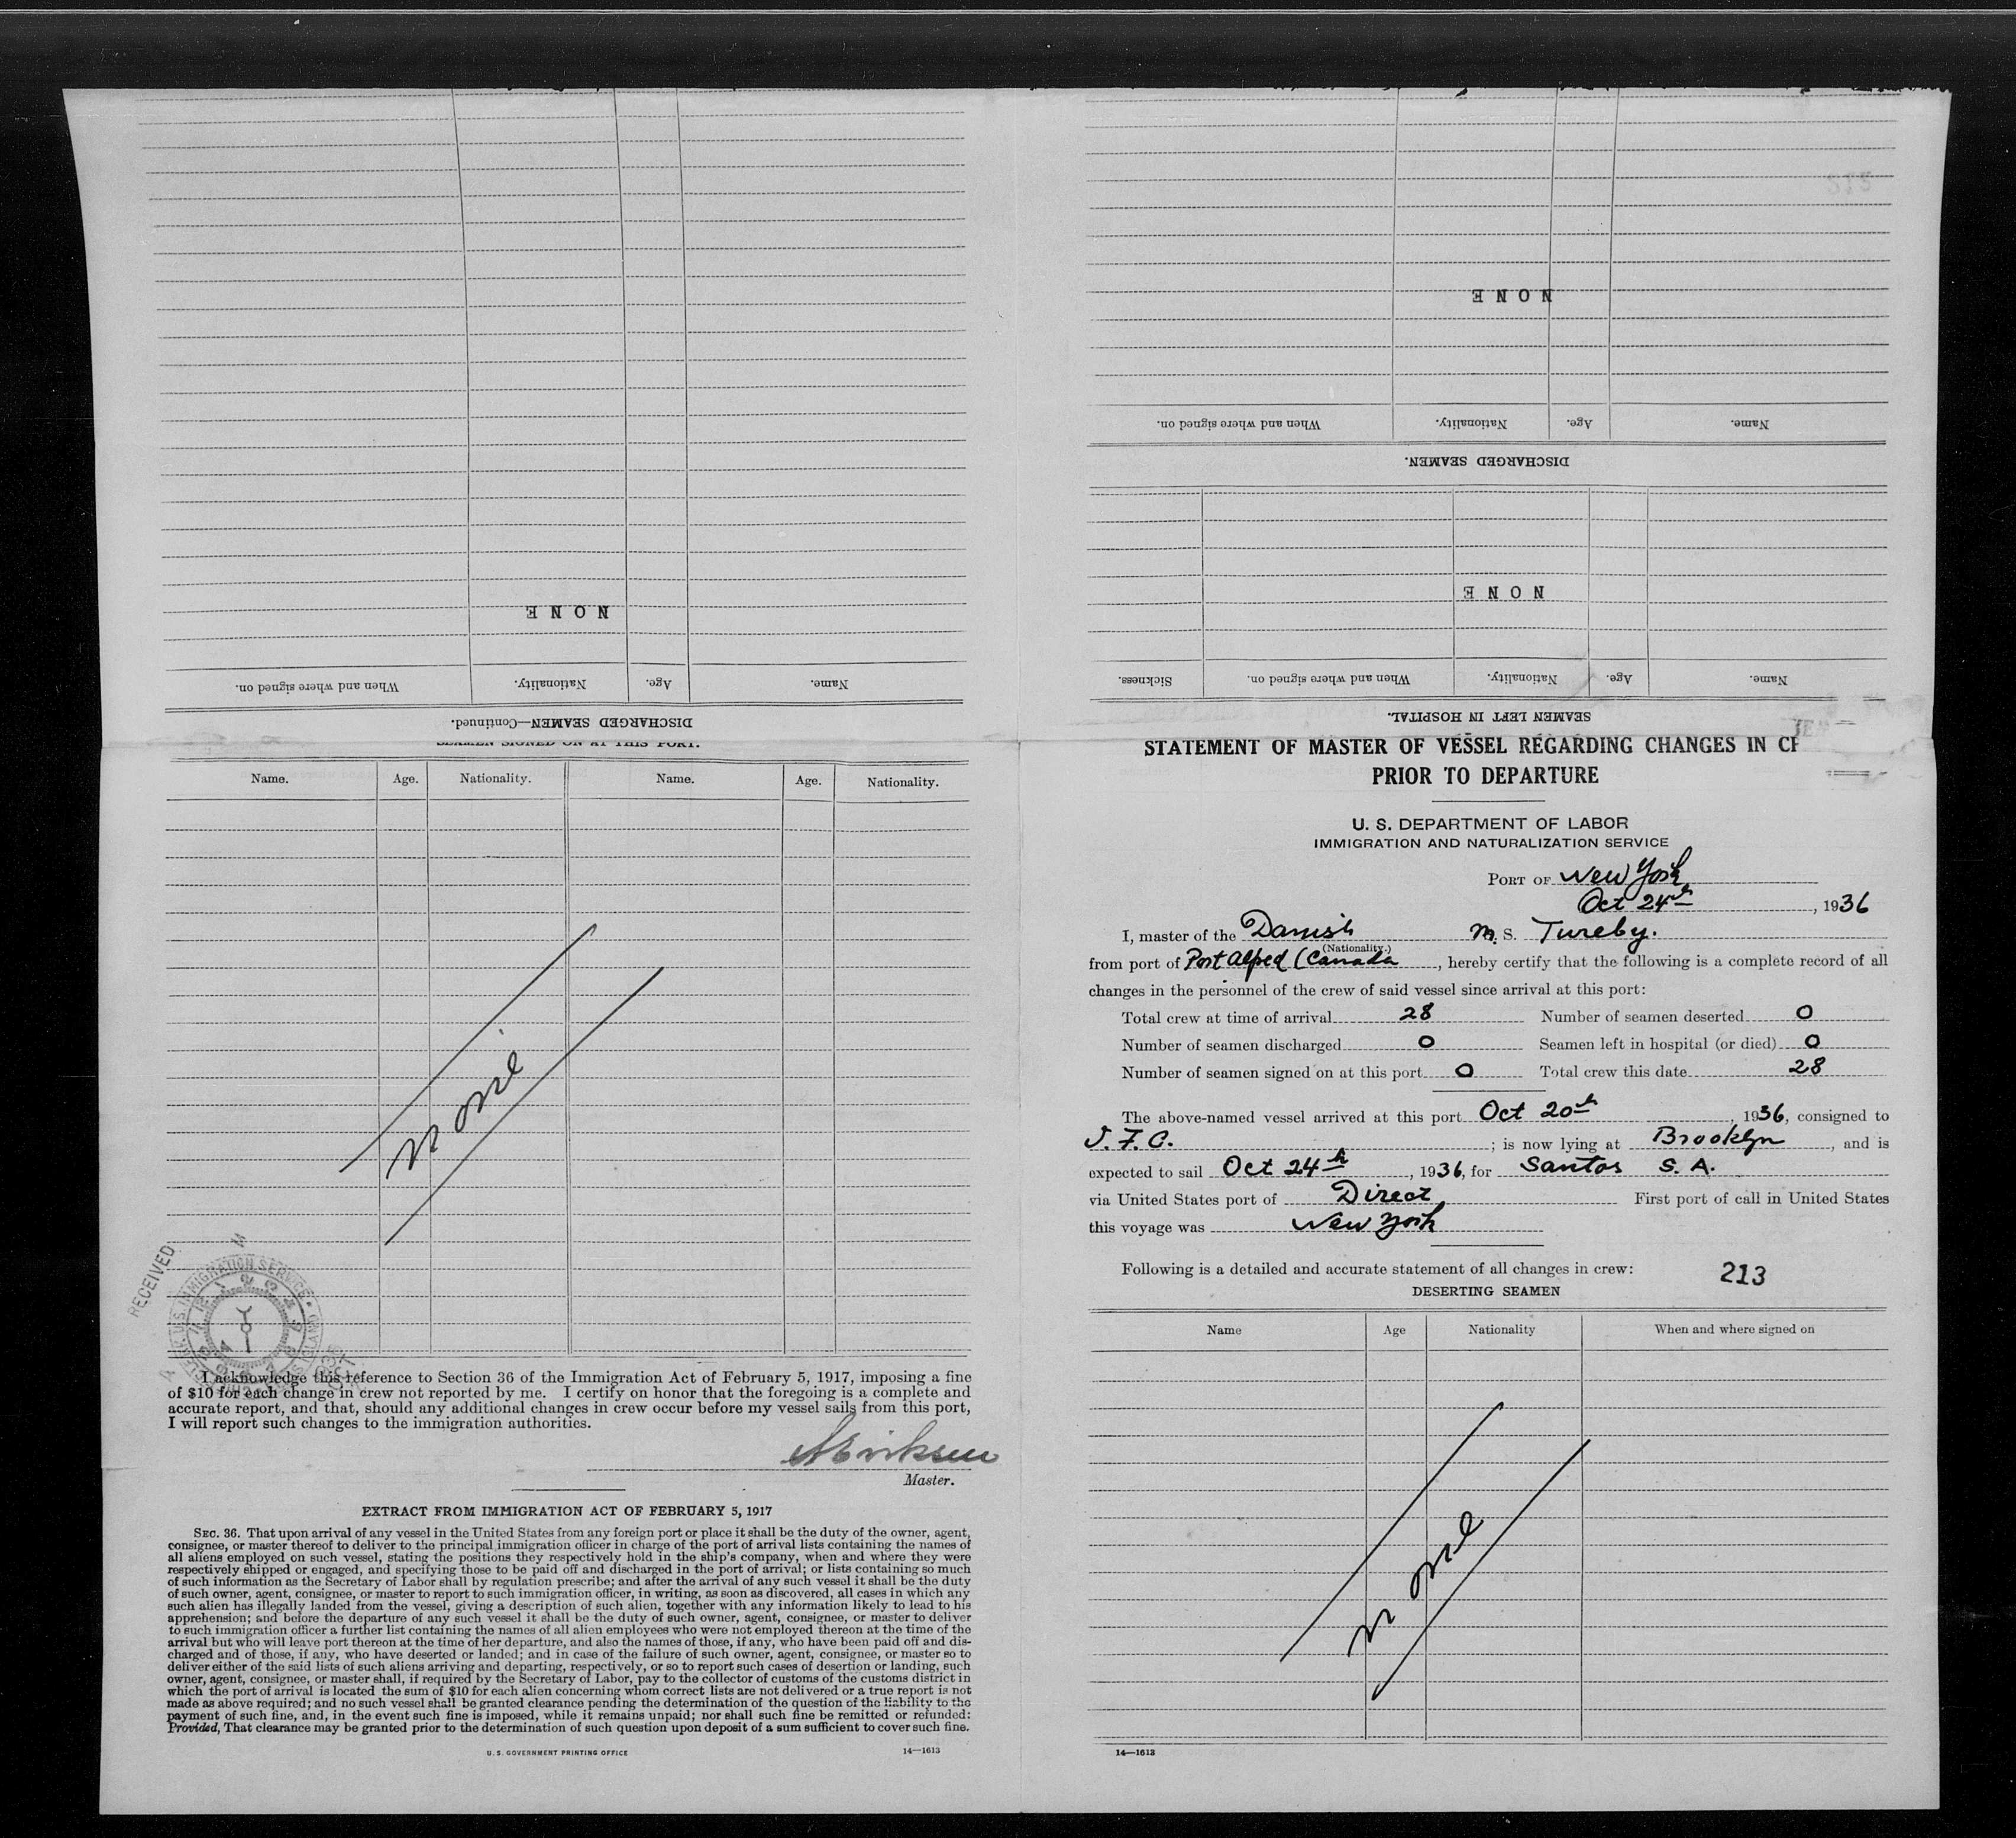 NONE
When and where signed on. Nationality. Age. Name.
DISCHARGED SEAMEN—Continued.
NONE
When and where signed on. Nationality. Age. Name.
DISCHARGED SEAMEN.
NONE
Sickness. When and where signed on. Nationality. Age. Name.
SEAMEN LEFT IN HOSPITAL.
SEAMEN SIGNED ON AT THIS PORT.
Name. Age. Nationality. Name. Age. Nationality.
None
RECEIVED
I acknowledge this reference to Section 36 of the Immigration Act of February 5, 1917, imposing a fine
of $10 for each change in crew not reported by me. I certify on honor that the foregoing is a complete and
accurate report, and that, should any additional changes in crew occur before my vessel sails from this port,
I will report such changes to the immigration authorities.
Master.
EXTRACT FROM IMMIGRATION ACT OF FEBRUARY 5, 1917
SEC. 36. That upon arrival of any vessel in the United States from any foreign port or place it shall be the duty of the owner, agent,
consignee, or master thereof to deliver to the principal immigration officer in charge of the port of arrival lists containing the names of
all aliens employed on such vessel, stating the positions they respectively hold in the ship's company, when and where they were
respectively shipped or engaged, and specifying those to be paid off and discharged in the port of arrival; or lists containing so much
of such information as the Secretary of Labor shall by regulation prescribe; and after the arrival of any such vessel it shall be the duty
of such owner, agent, consignee, or master to report to such immigration officer, in writing, as soon as discovered, all cases in which any
such alien has illegally landed from the vessel, giving a description of such alien, together with any information likely to lead to his
apprehension; and before the departure of any such vessel it shall be the duty of such owner, agent, consignee, or master to deliver
to such immigration officer a further list containing the names of all alien employees who were not employed thereon at the time of the
arrival but who will leave port thereon at the time of her departure, and also the names of those, if any, who have been paid off and dis-
charged and of those, if any, who have deserted or landed; and in case of the failure of such owner, agent, consignee, or master so to
deliver either of the said lists of such aliens arriving and departing, respectively, or so to report such cases of desertion or landing, such
owner, agent, consignee, or master shall, if required by the Secretary of Labor, pay to the collector of customs of the customs district in
which the port of arrival is located the sum of $10 for each alien concerning whom correct lists are not delivered or a true report is not
made as above required; and no such vessel shall be granted clearance pending the determination of the question of the liability to the
payment of such fine, and, in the event such fine is imposed, while it remains unpaid; nor shall such fine be remitted or refunded:
Provided, That clearance may be granted prior to the determination of such question upon deposit of a sum sufficient to cover such fine.
U. S. GOVERNMENT PRINTING OFFICE 14—1613
STATEMENT OF MASTER OF VESSEL REGARDING CHANGES IN
PRIOR TO DEPARTURE
U. S. DEPARTMENT OF LABOR
IMMIGRATION AND NATURALIZATION SERVICE
PORT OF New York
Oct 24th, 1936
I, master of the Danish M. S. Tureby.
(Nationality.)
from port of Port Alfred (Canada, hereby certify that the following is a complete record of all
changes in the personnel of the crew of said vessel since arrival at this port:
Total crew at time of arrival 28 Number of seamen deserted 0
Number of seamen discharged 0 Seamen left in hospital (or died) 0
Number of seamen signed on at this port 0 Total crew this date 28
The above-named vessel arrived at this port Oct 20th, 1936, consigned to
J. F. C. ; is now lying at Brooklyn, and is
expected to sail Oct 24th, 1936, for Santos S. A.
via United States port of Direct First port of call in United States
this voyage was New York
Following is a detailed and accurate statement of all changes in crew: 213
DESERTING SEAMEN
Name Age Nationality When and where signed on
None
14—1613